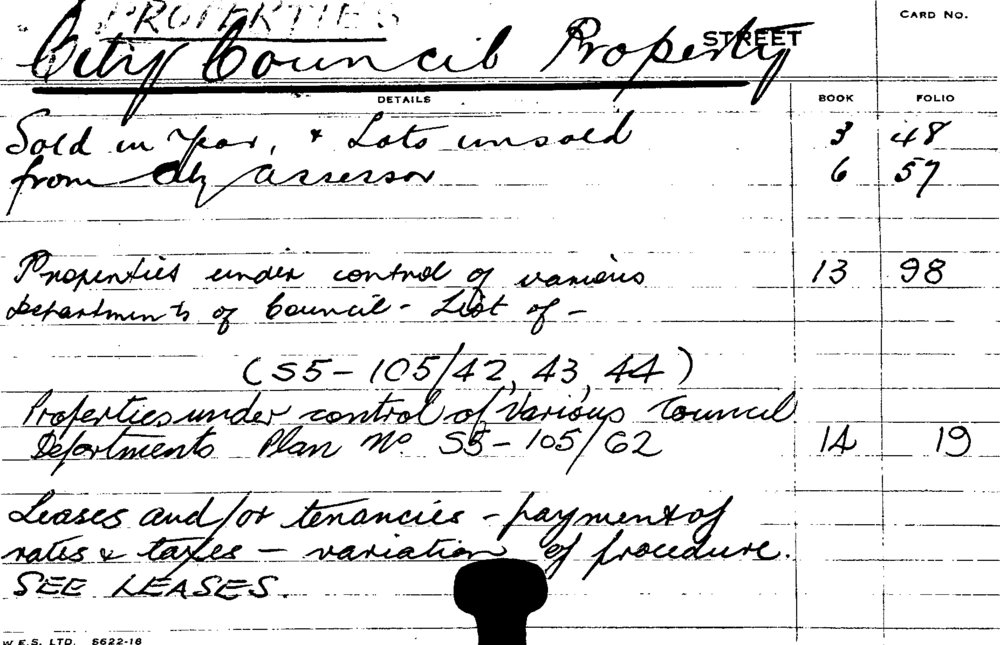 PROPERTIES
CARD NO.
City Council Property STREET
DETAILS BOOK FOLIO
Sold in year, & Lots unsold 3 48
from City Assessor 6 57
Properties under control of various 13 98
Departments of Council - List of -
(S5-105/42, 43, 44)
Properties under control of Various Council
Departments Plan No. S5-105/62 14 19
Leases and/or tenancies - payment of
rates & taxes - variation of procedure.
SEE LEASES.
W.E.S. LTD. 5622-18